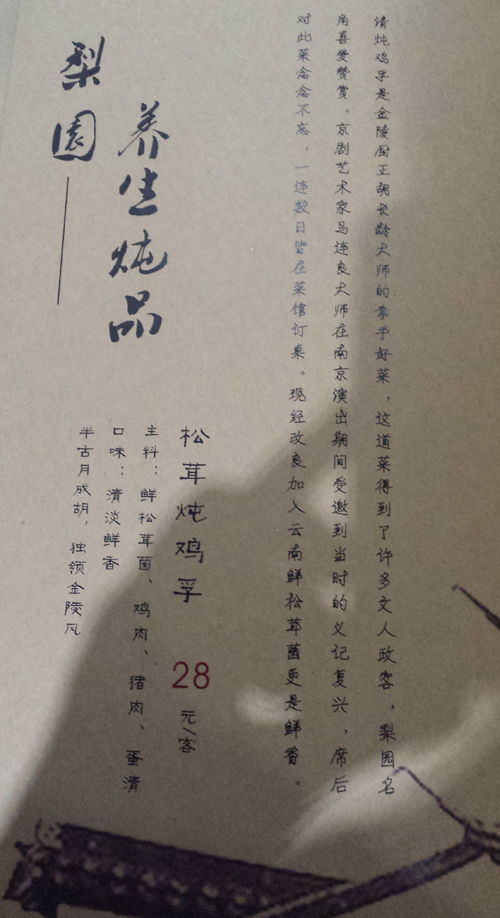 梨園
养生炖品
清炖鸡孚是金陵厨王胡长龄大师的拿手好菜，这道菜得到了许多文人政客，梨园名
角喜爱赞赏。京剧艺术家马连良大师在南京演出期间受邀到当时的义记复兴，席后
对此菜念念不忘，一连数日皆在菜馆订桌。现经改良加入云南鲜松茸菌更是鲜香。
松茸炖鸡孚 28元/客
主料：鲜松茸菌、鸡肉、猪肉、蛋清
口味：清淡鲜香
半古月成胡，独领金陵风